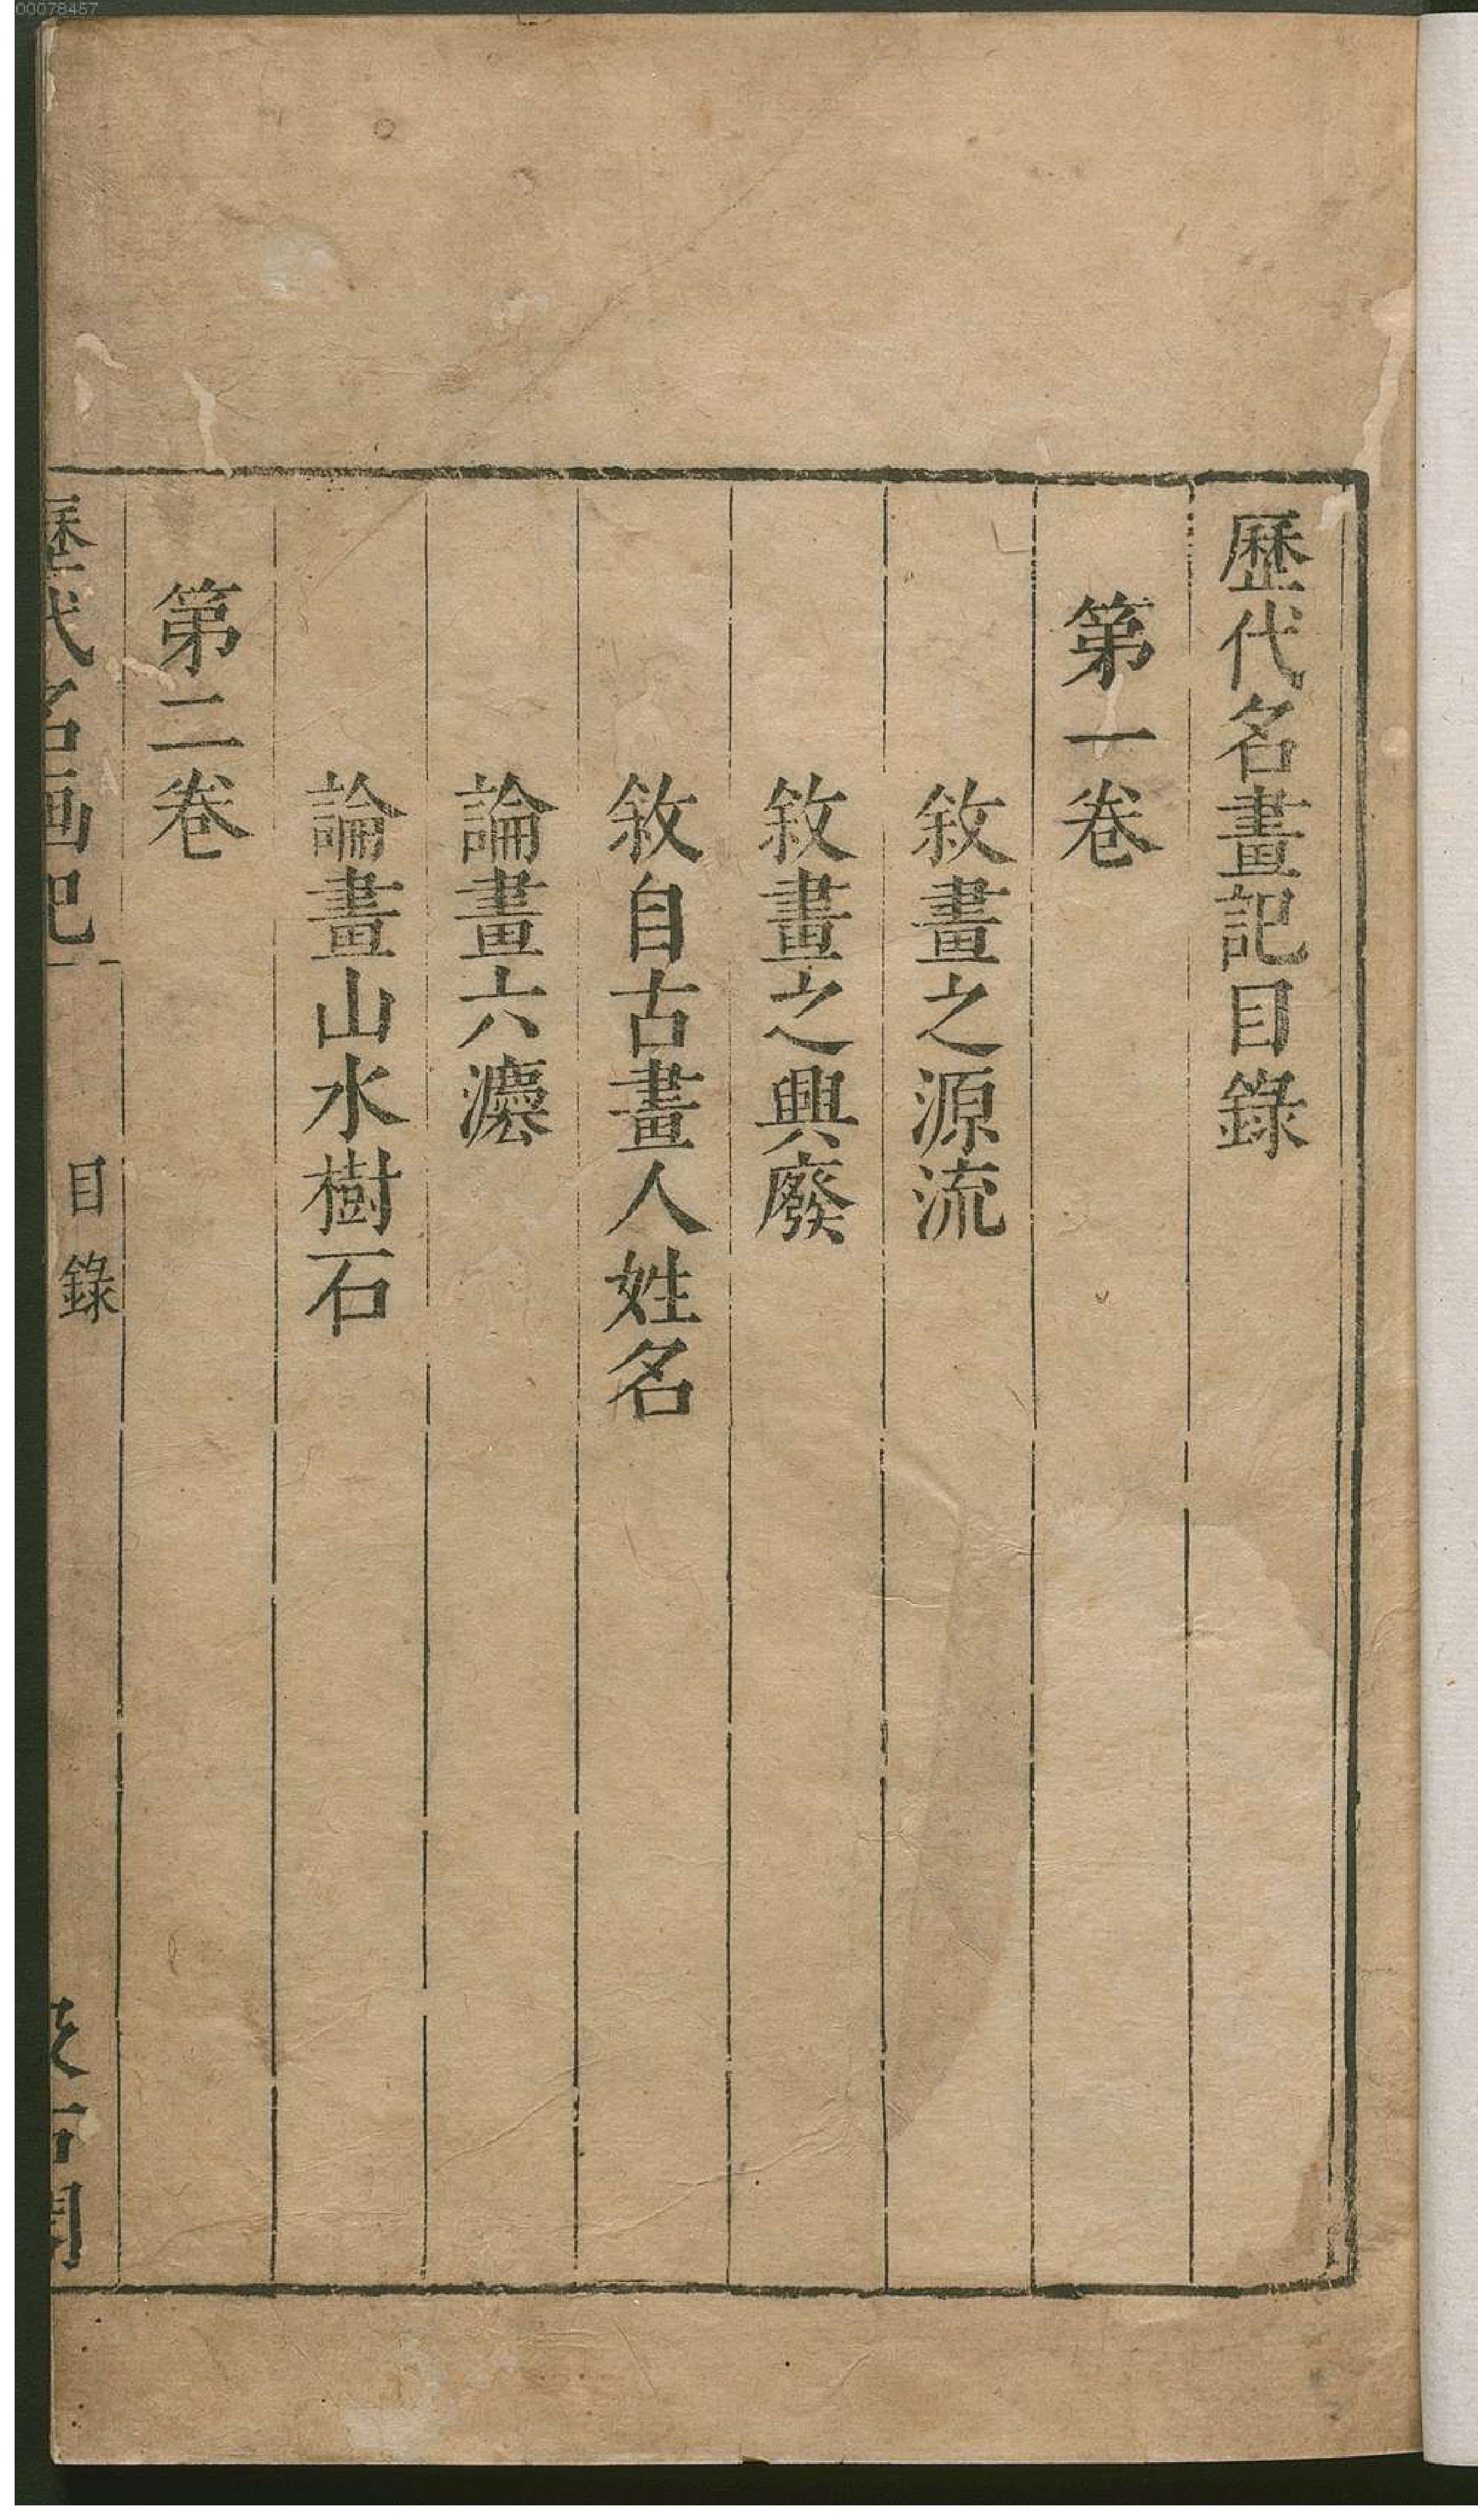 歷代名畫記目錄
第一卷
敘畫之源流
敘畫之興廢
敘自古畫人姓名
論畫六灋
論畫山水樹石
第二卷
歷代名画記
目錄
汲古閣
00078457